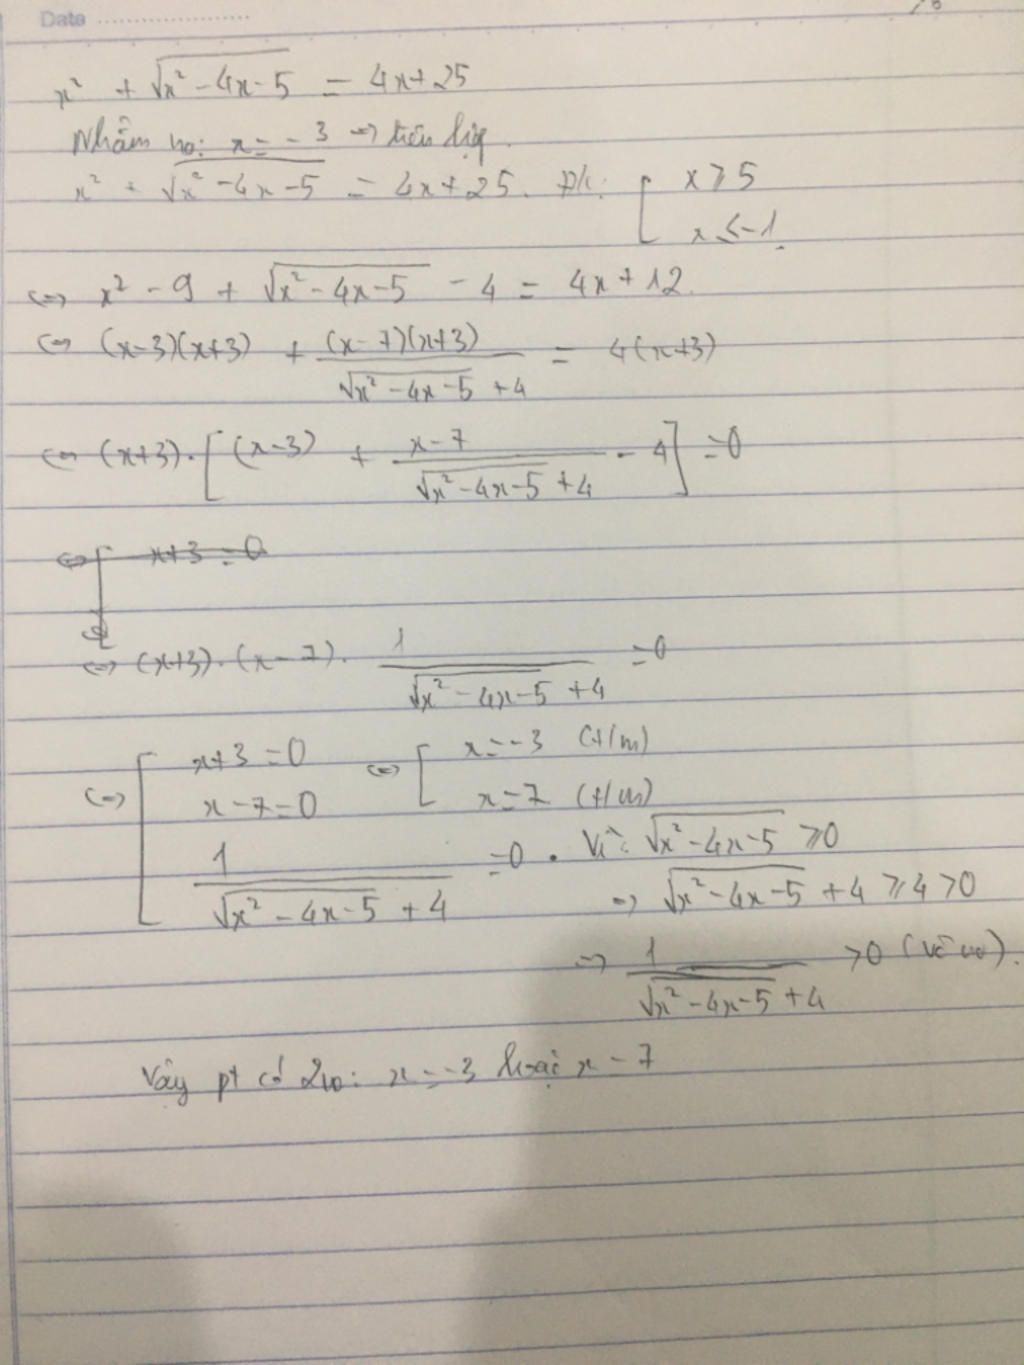 Date
x² + √(x² - 4x - 5) = 4x + 25
Nhẩm no: x = -3 => liên hợp.
x² + √(x² - 4x - 5) = 4x + 25. Đk: [ x ≥ 5
x ≤ -1
<=> x² - 9 + √(x² - 4x - 5) - 4 = 4x + 12
<=> (x-3)(x+3) + (x-7)(x+3) / (√(x² - 4x - 5) + 4) = 4(x+3)
<=> (x+3).[(x-3) + (x-7) / (√(x² - 4x - 5) + 4) - 4] = 0
<=> [ x+3 = 0
<=> (x+3).(x-7). 1 / (√(x² - 4x - 5) + 4) = 0
<=> [ x+3 = 0 <=> [ x = -3 (t/m)
x - 7 = 0 x = 7 (t/m)
1 / (√(x² - 4x - 5) + 4) = 0 . Vì: √(x² - 4x - 5) ≥ 0
=> √(x² - 4x - 5) + 4 ≥ 4 > 0
=> 1 / (√(x² - 4x - 5) + 4) > 0 (vô no).
Vậy pt có 2no: x = -3 hoặc x = 7